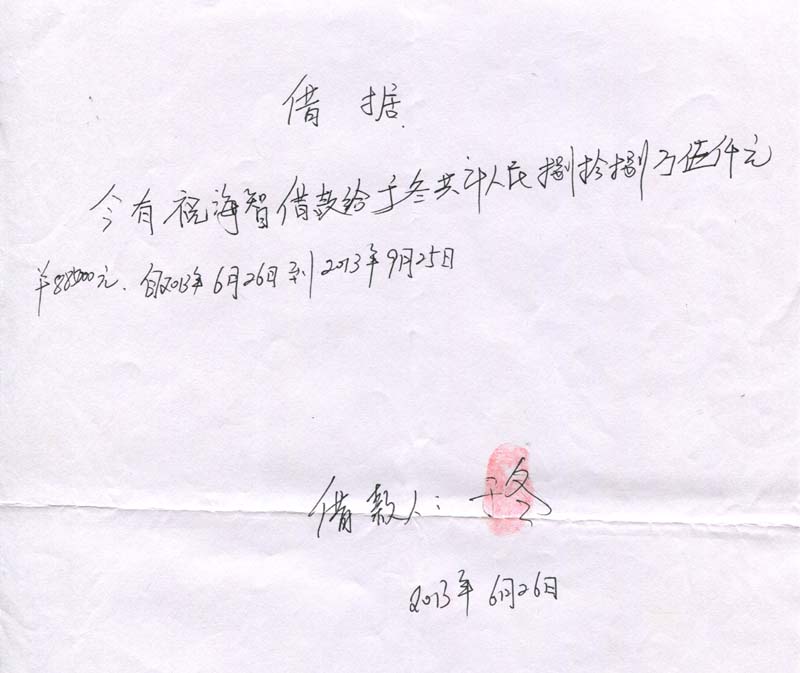 借据.
今有祝海智借款给于冬共计人民捌拾捌万伍仟元
￥885000元. 自2013年6月26日到2013年9月25日
借款人: 于冬
2013年6月26日